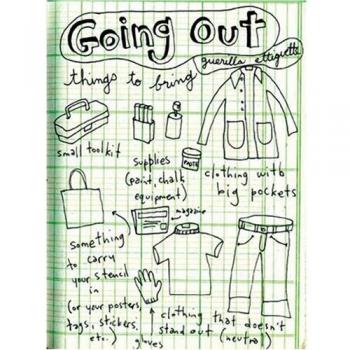 Going Out
guerilla ettiquette
things to bring
small toolkit
supplies
(paint, chalk
equipment)
PASTE
clothing with
big pockets
magazine
something
to carry
your stencil
in
(or your posters,
tags, stickers,
etc.)
gloves
clothing that doesn't
stand out (neutral)